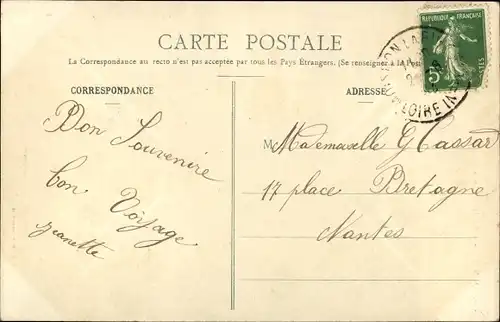 CARTE POSTALE
La Correspondance au recto n'est pas acceptée par tous les Pays Étrangers. (Se renseigner à la Poste
CORRESPONDANCE
ADRESSE
RÉPUBLIQUE FRANÇAISE
5
POSTES
LOIRE INF
Bon Souvenire
bon Voyage
Jeanette
M
Mademaselle G Cassard
17 place Bretagne
Nantes